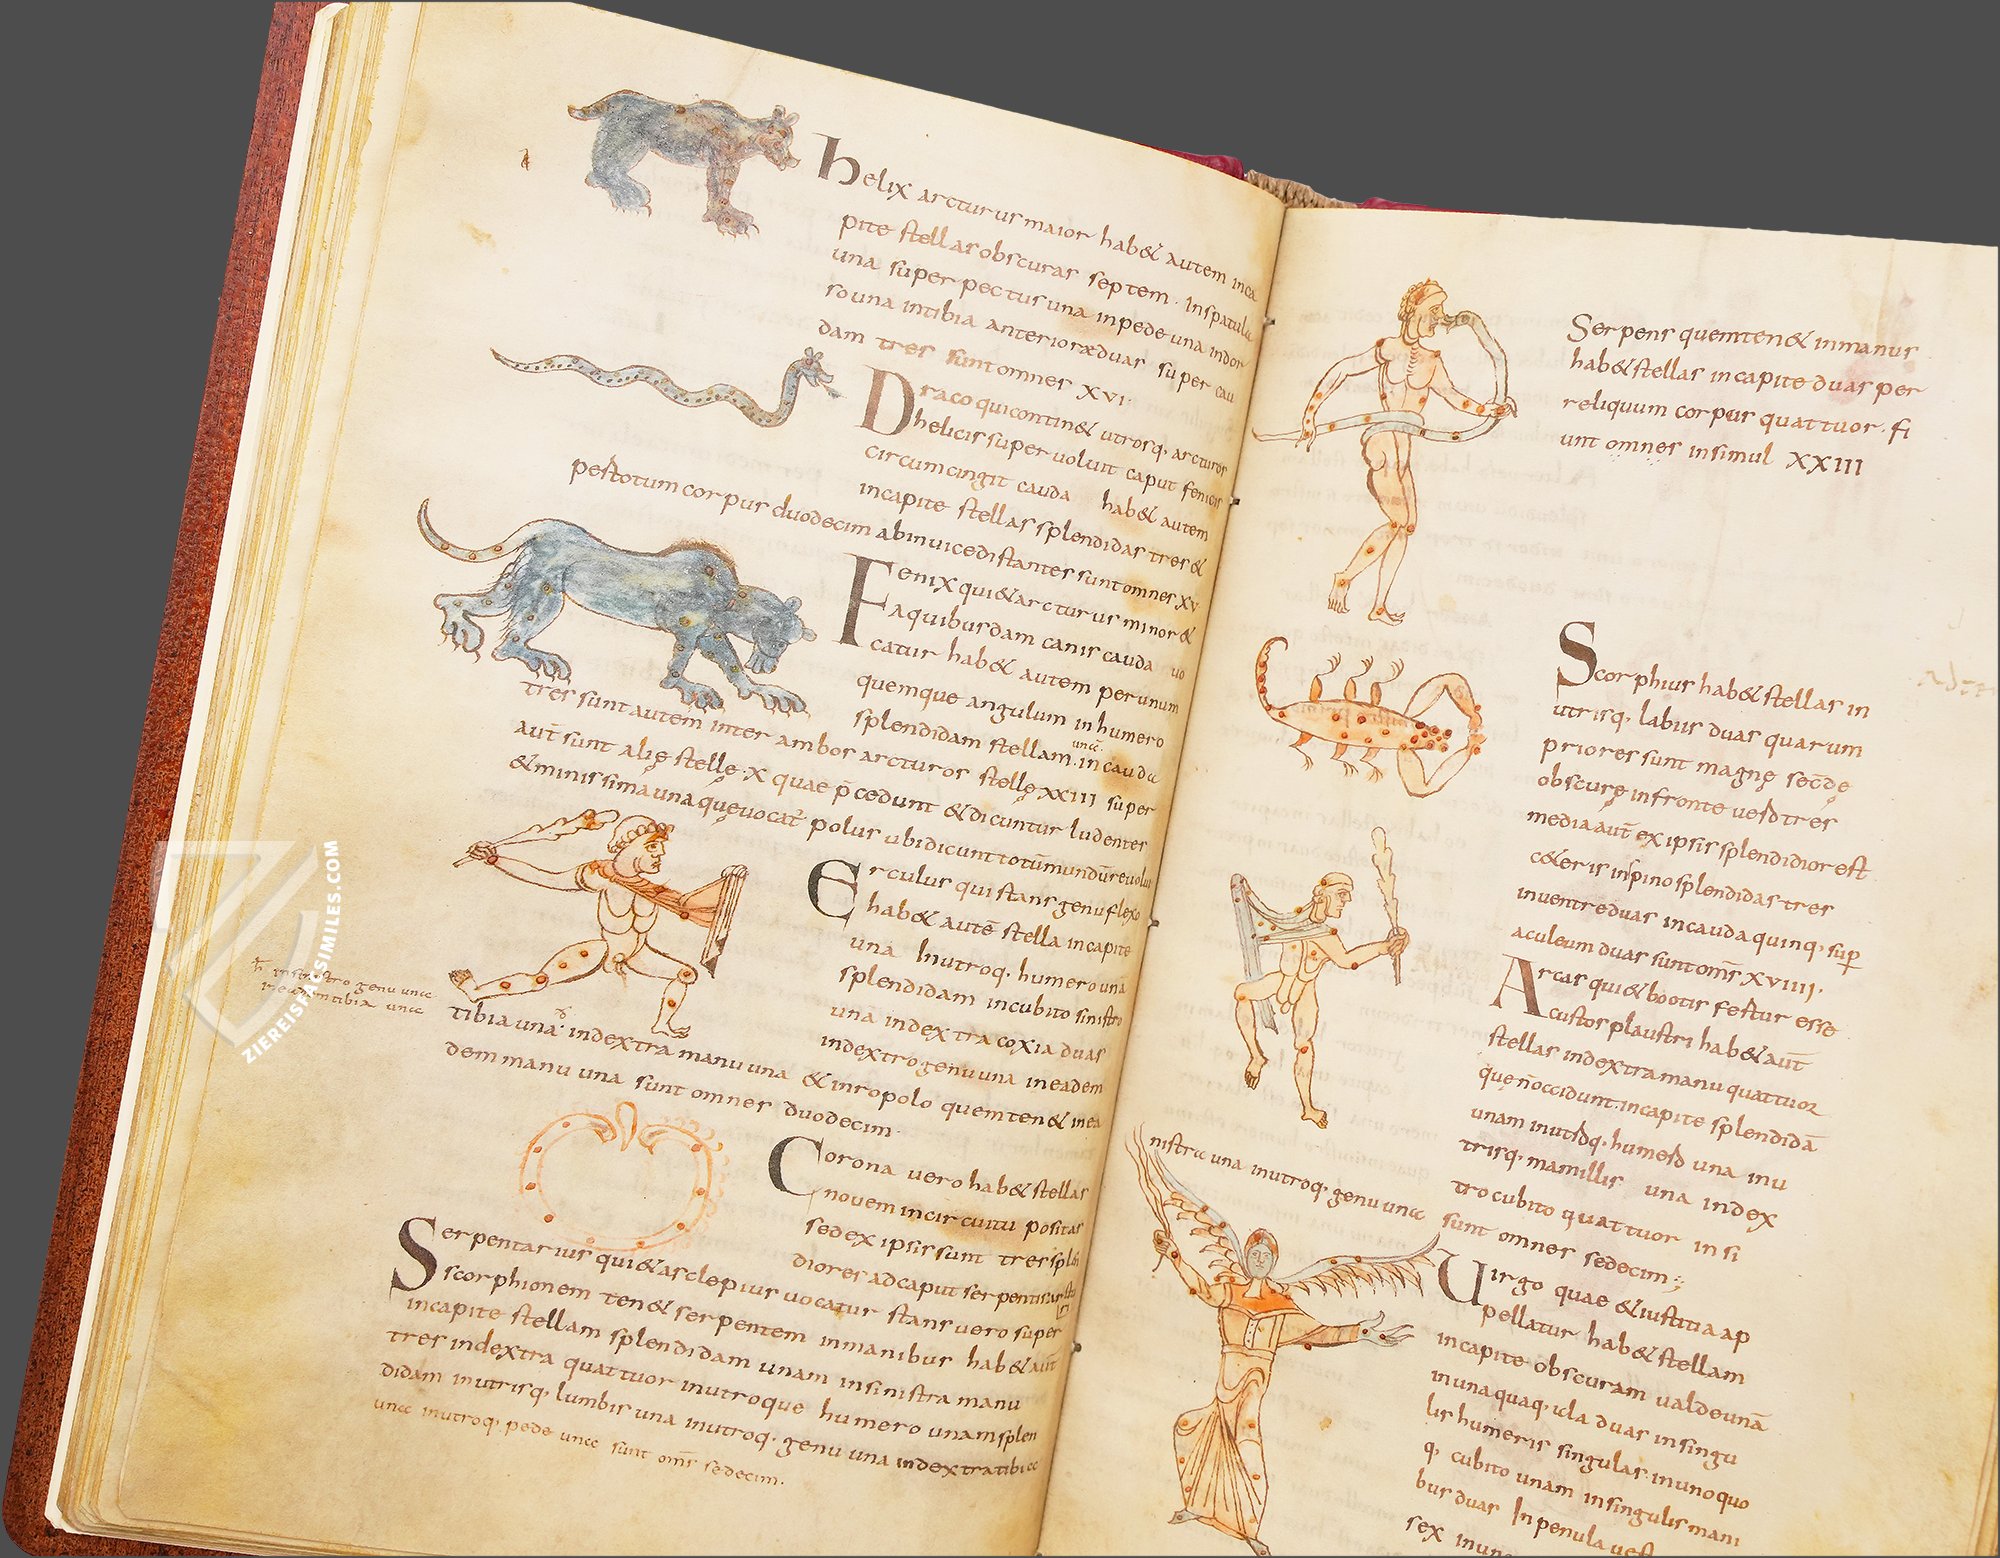 helix arcturus maior hab& autem inca
pite stellas obscuras septem · Inspatula
una super pectus una inpede una indor
so una intibia anterioræduas super cau
dam tres sunt omnes XVI·
Draco qui contin& utrosq, arcturos
helicis super uoluit caput fenicis
circumcingit cauda hab& autem
incapite stellas splendidas tres &
pestotum corpus duodecim abinuicedistantes sunt omnes XV
Fenix qui& arcturus minor &
aquibusdam canis cauda uo
catur hab& autem perunum
quemque angulum inhumero
splendidam stellam. in cauda
tres sunt autem inter ambos arcturos stellę XXIII super
aut̄ sunt alię stellę X quae p̄cedunt & dicuntur ludentes
& minissima una quęuocat̄ polus ubi dicunt totū mundū reuolui
Erculus qui stans genuflexo
hab& autē stella incapite
una Inutroq, humero unā
splendidam incubito sinistro
una indextra coxia duas
indextro genu una ineadem
tibia una· indextra manu una & inropolo quem ten& inea
dem manu una sunt omnes duodecim·
Corona uero hab& stellas
nouem incircuitu positas
sed ex ipsis sunt tres splē
diores ad caput serpentis
Serpentarius qui& asclepius uocatur stans uero super
scorphionem ten& serpentem inmanibus hab& aut̄
incapite stellam splendidam unam insinistra manu
tres indextra quattuor inutroque humero unam splen
didam inutrisq, lumbis una inutroq, genu una indextra tibia
una inutroq, pede una sunt om̄s sedecim·
insinistro genu una
ineadem tibia una
Serpens quem ten& inmanus
hab& stellas incapite duas per
reliquum corpus quattuor · fi
unt omnes insimul XXIII
Scorphius hab& stellas in
utrisq, labiis duas quarum
priores sunt magnę sec̄dę
obscurę infronte uesd tres
media aut̄ ex ipsis splendidior est
c&eris inspino splendidas tres
inuentre duas incauda quinq, sup
aculeum duas sunt om̄s XVIIII·
Arcas qui& bootis festur esse
custor plaustri hab& aut̄
stellas indextra manu quattuor
quę n̄ occidunt. incapite splendidā
unam inutisq, humesd una inu
trisq, mamillis una index
tro cubito quattuor in si
nistra una inutroq, genu una sunt omnes sedecim:;
Uirgo quae & iustitia ap
pellatur hab& stellam
incapite obscuram ualde unā
inunaquaq, ala duas insingu
lis humeris singulas. inunoquo
q, cubito unam insingulis mani
bus duas Inpenula uest
sex inuno
ZIEREISFACSIMILES.COM